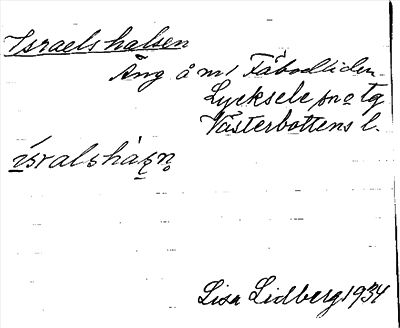 Israelshalsen
Äng å m1 Fäbodtiden
Lycksele sn o tg
Västerbottens l.
ísralshàın
Lisa Lidberg 1934